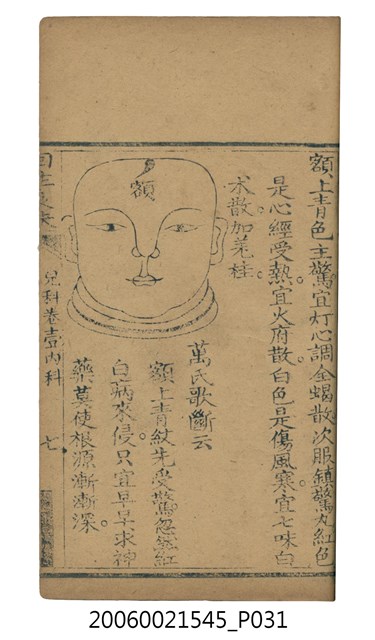 額上青色主驚宜灯心調全蝎散次服鎮驚丸紅色
是心經受熱宜火府散。白色是傷風寒。宜七味白
术散加羌桂
額
萬氏歌斷云
額上青紋先受驚忽然紅
白病來侵。只宜早早求神
藥莫使根源漸漸深。
兒科卷壹內科
七
20060021545_P031